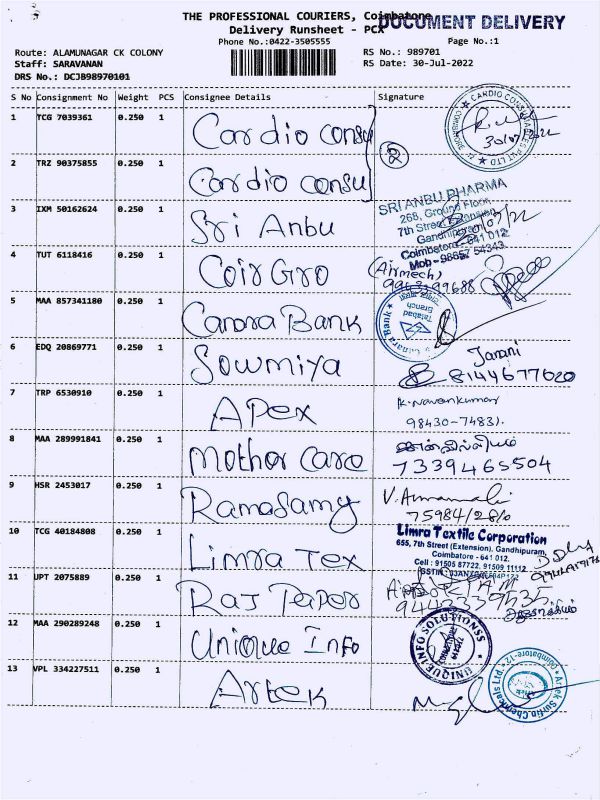 THE PROFESSIONAL COURIERS, Coimbatone
DOCUMENT DELIVERY
Delivery Runsheet - PCX
Phone No.:0422-3505555
Page No.:1
Route: ALAMUNAGAR CK COLONY
RS No.: 989701
Staff: SARAVANAN
RS Date: 30-Jul-2022
DRS No.: DCJB98970101
S No Consignment No Weight PCS Consignee Details Signature
1 TCG 7039361 0.250 1 Cardio consu
CARDIO CONSULTANTS PVT LTD
2 TRZ 90375855 0.250 1 Cardio consu
2
3 IXM 50162624 0.250 1 Sri Anbu
SRI ANBU PHARMA
268, Ground Floor,
7th Street Extension
Gandhipuram
Coimbatore - 641 012
Mob - 98657 54343
4 TUT 6118416 0.250 1 Coir Gro
(Airmech)
5 MAA 857341180 0.250 1 Canara Bank
Canara Bank
Tatabad
Branch
6 EDQ 20869771 0.250 1 Sowmiya
Janani
8144677020
7 TRP 6530910 0.250 1 Apex
K. Naveenkumar
98430-74831.
8 MAA 289991841 0.250 1 Mother Care
7339465504
9 HSR 2453017 0.250 1 Ramasamy
10 TCG 40184808 0.250 1 Limra Tex
Limra Textile Corporation
655, 7th Street (Extension), Gandhipuram,
Coimbatore - 641 012.
Cell : 91505 87722, 91509 11112
11 UPT 2075889 0.250 1 Raj Paper
12 MAA 290289248 0.250 1 Unique Info
UNIQUE INFO SOLUTIONSS
13 VPL 334227511 0.250 1 Artek
Artek Surfin Chemicals Ltd.
Coimbatore-12